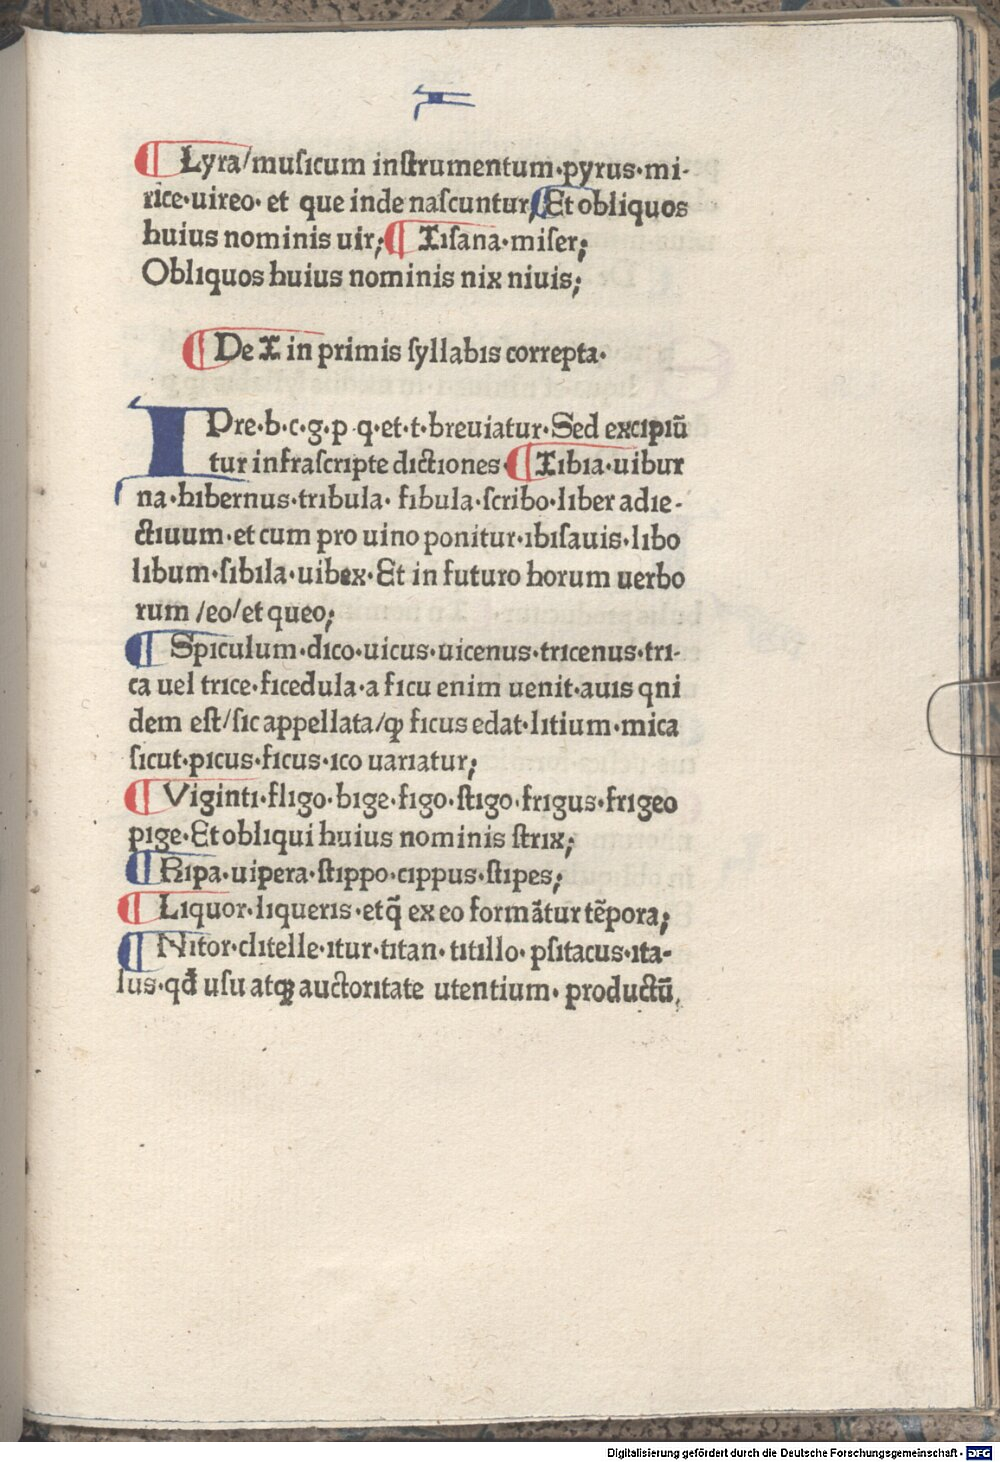 ¶ Lyra/muſicum inſtrumentum·pyrus·mi-
rice·uireo· et que inde naſcuntur;¶ Et obliquos
huius nominis uir;¶ Tiſana·miſer;
Obliquos huius nominis nix niuis;
¶ De I in primis ſyllabis correpta·
I Pre·b·c·g·p·q·et·t·breuiatur·Sed excipiū
tur infraſcripte dictiones·¶ Tibia·uibur
na·hibernus·tribula· fibula·ſcribo·liber adie-
ctiuum·et cum pro uino ponitur·ibiſauis·libo
libum·ſibila·uibex·Et in futuro horum uerbo
rum /eo/et queo;
¶ Spiculum·dico·uicus·uicenus·tricenus·tri-
ca uel trice·ficedula·a ficu enim uenit·auis qni
dem eſt/ſic appellata/ꝙ ficus edat·litium·mica
ſicut·picus·ficus·ico uariatur;
¶ Viginti·fligo·bige·figo·ſtigo·frigus·frigeo
pige·Et obliqui huius nominis ſtrix;
¶ Ripa·uipera·ſtippo·cippus·ſtipes;
¶ Liquor·liqueris·etq̄ ex eo formātur tēpora;
¶ Nitor·clitelle·itur·titan·titillo·pſitacus·ita-
lus·qđ uſu atqꝫ auctoritate utentium·productū,
Digitalisierung gefördert durch die Deutsche Forschungsgemeinschaft - DFG